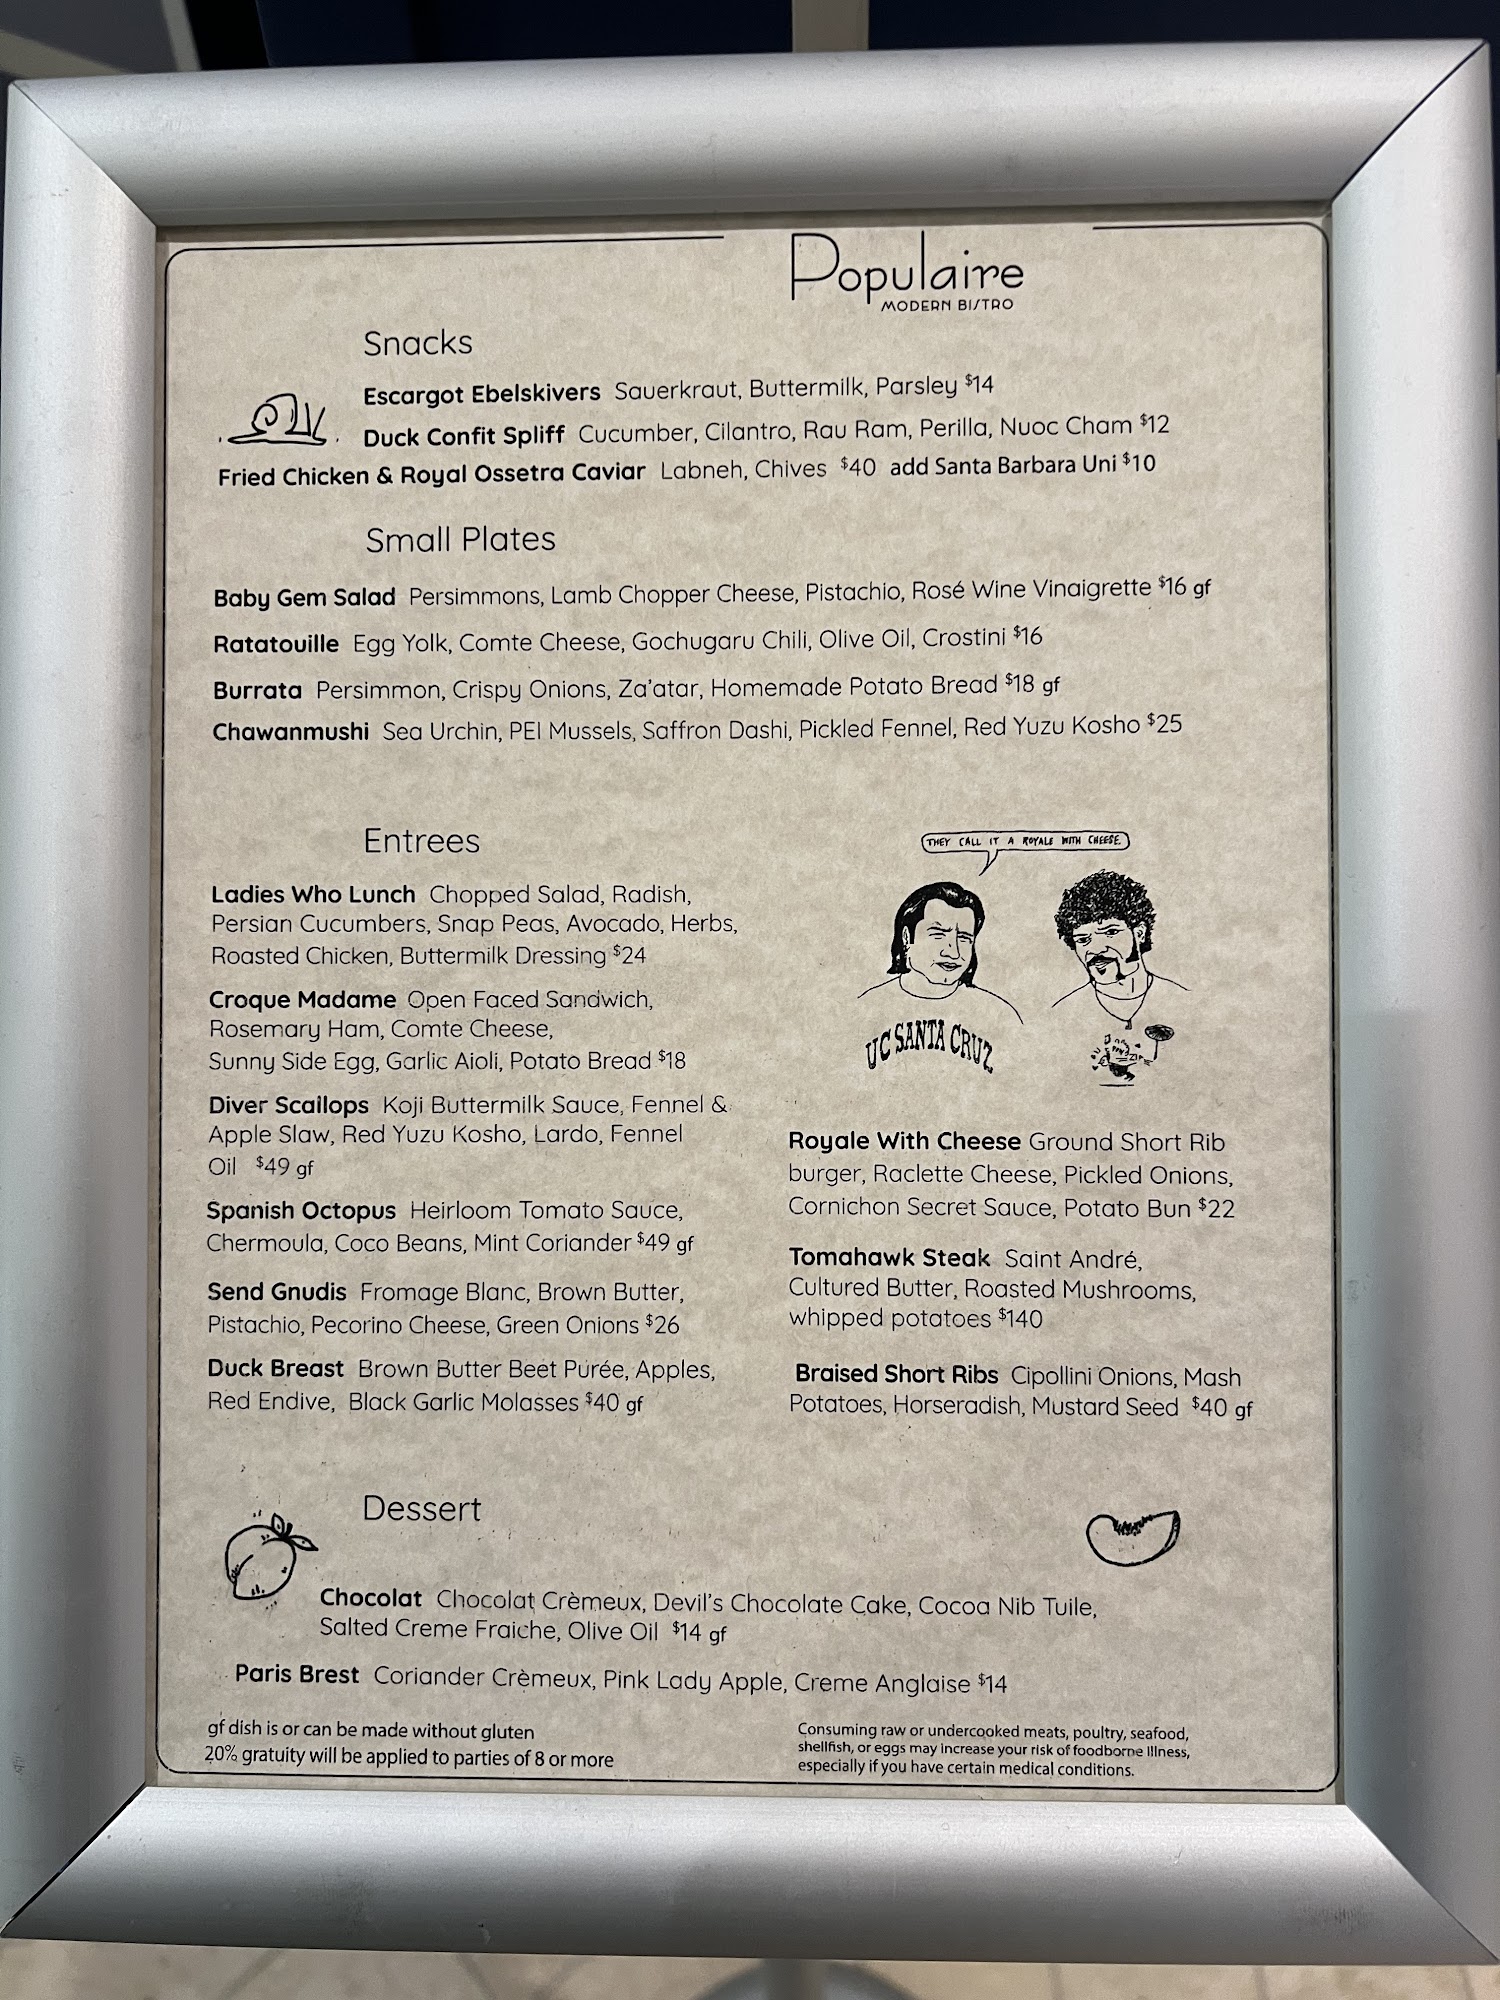 Populaire
MODERN BISTRO
Snacks
Escargot Ebelskivers Sauerkraut, Buttermilk, Parsley $14
Duck Confit Spliff Cucumber, Cilantro, Rau Ram, Perilla, Nuoc Cham $12
Fried Chicken & Royal Ossetra Caviar Labneh, Chives $40 add Santa Barbara Uni $10
Small Plates
Baby Gem Salad Persimmons, Lamb Chopper Cheese, Pistachio, Rosé Wine Vinaigrette $16 gf
Ratatouille Egg Yolk, Comte Cheese, Gochugaru Chili, Olive Oil, Crostini $16
Burrata Persimmon, Crispy Onions, Za'atar, Homemade Potato Bread $18 gf
Chawanmushi Sea Urchin, PEI Mussels, Saffron Dashi, Pickled Fennel, Red Yuzu Kosho $25
Entrees
Ladies Who Lunch Chopped Salad, Radish,
Persian Cucumbers, Snap Peas, Avocado, Herbs,
Roasted Chicken, Buttermilk Dressing $24
Croque Madame Open Faced Sandwich,
Rosemary Ham, Comte Cheese,
Sunny Side Egg, Garlic Aioli, Potato Bread $18
Diver Scallops Koji Buttermilk Sauce, Fennel &
Apple Slaw, Red Yuzu Kosho, Lardo, Fennel
Oil $49 gf
Spanish Octopus Heirloom Tomato Sauce,
Chermoula, Coco Beans, Mint Coriander $49 gf
Send Gnudis Fromage Blanc, Brown Butter,
Pistachio, Pecorino Cheese, Green Onions $26
Duck Breast Brown Butter Beet Purée, Apples,
Red Endive, Black Garlic Molasses $40 gf
THEY CALL IT A ROYALE WITH CHEESE.
UC SANTA CRUZ
Royale With Cheese Ground Short Rib
burger, Raclette Cheese, Pickled Onions,
Cornichon Secret Sauce, Potato Bun $22
Tomahawk Steak Saint André,
Cultured Butter, Roasted Mushrooms,
whipped potatoes $140
Braised Short Ribs Cipollini Onions, Mash
Potatoes, Horseradish, Mustard Seed $40 gf
Dessert
Chocolat Chocolat Crèmeux, Devil's Chocolate Cake, Cocoa Nib Tuile,
Salted Creme Fraiche, Olive Oil $14 gf
Paris Brest Coriander Crèmeux, Pink Lady Apple, Creme Anglaise $14
gf dish is or can be made without gluten
20% gratuity will be applied to parties of 8 or more
Consuming raw or undercooked meats, poultry, seafood,
shellfish, or eggs may increase your risk of foodborne Illness,
especially if you have certain medical conditions.